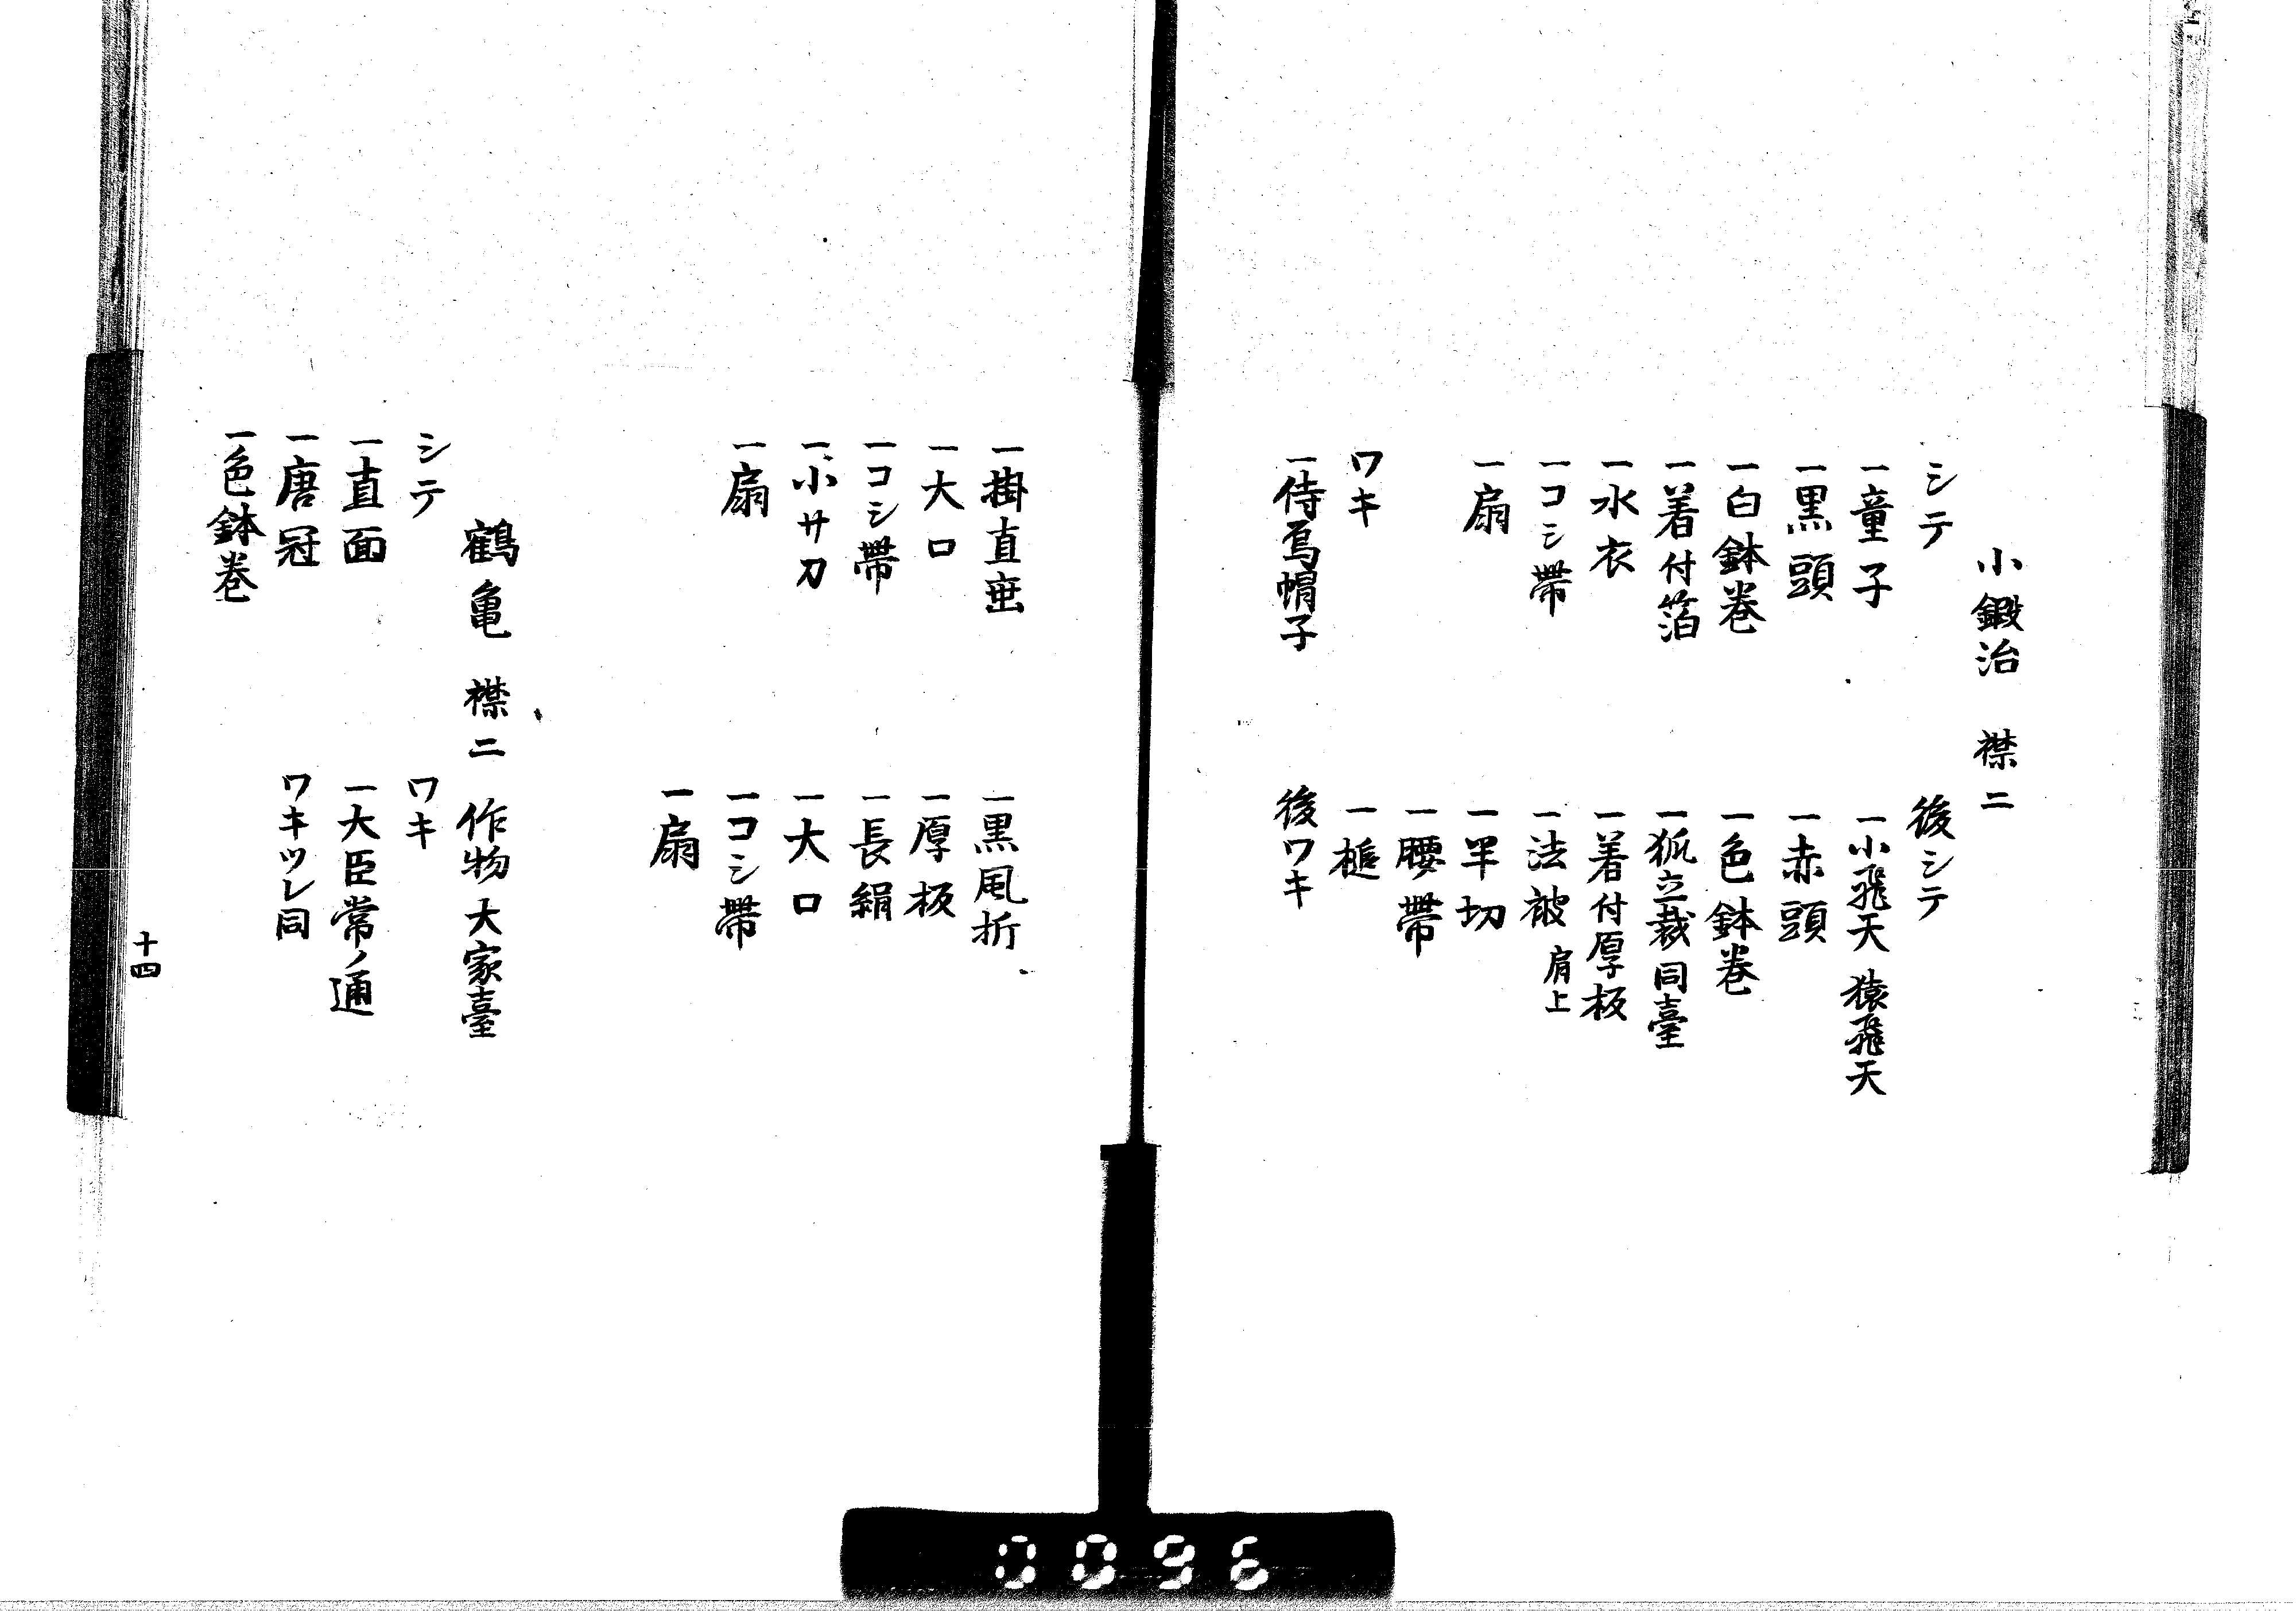 小鍛治　襟二
シテ
一童子
一黒頭
一白鉢巻
一着付箔
一水衣
一コシ帯
一扇
後シテ
一小飛天 猿飛天
一赤頭
一色鉢巻
一狐立裁同臺
一着付厚板
一法被 肩上
一半切
一腰帯
一槌
ワキ
一侍烏帽子
一掛直垂
一大口
一コシ帯
一小サ刀
一扇
後ワキ
一黒風折
一厚板
一長絹
一大口
一コシ帯
一扇
鶴亀　襟二　作物大家臺
シテ
一直面
一唐冠
一色鉢巻
ワキ
一大臣常ノ通
ワキツレ同
十四